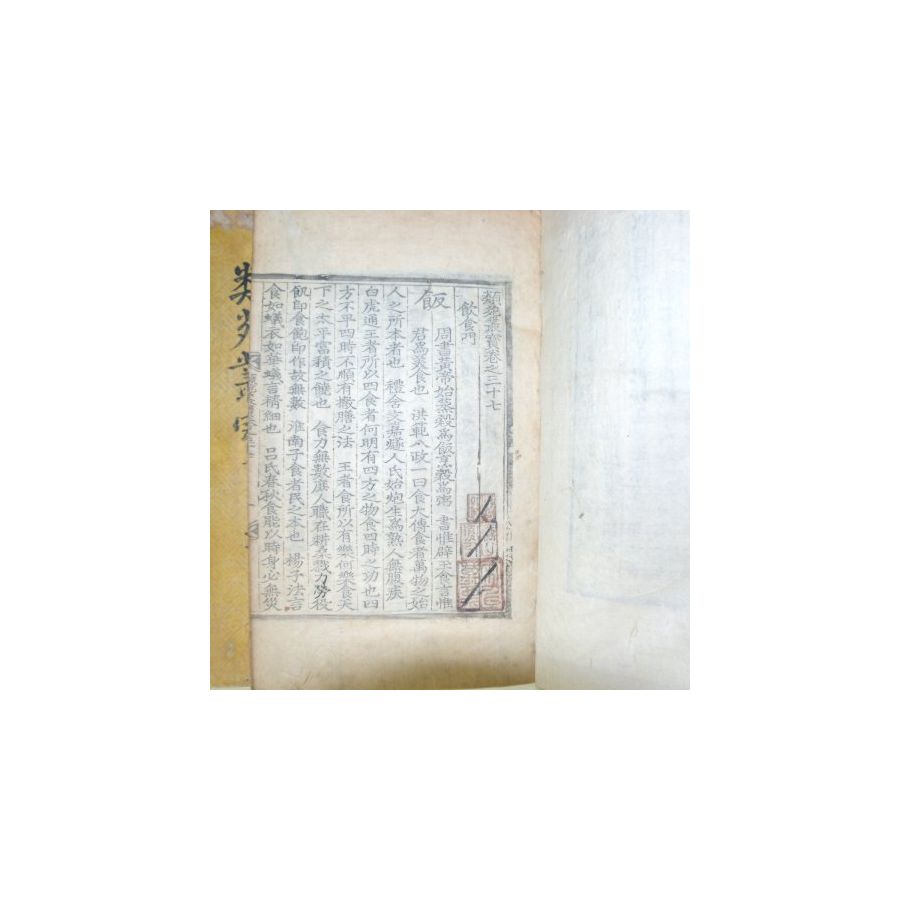 類苑叢寶卷之三十七
飲食門
飯
周書黃帝始蒸穀爲飯烹穀爲粥 書惟辟玉食言惟
君爲美食也 洪範八政一曰食大傳食者萬物之始
人之所本者也 禮含文嘉燧人氏始炮生爲熟人無腹疾
白虎通王者所以四食者何明有四方之物食四時之功也四
方不平四時不順有撤膳之法 王者食所以有樂何樂食天
下之太平富積之饒也 食力無數庶人職在耕桑戮力勞役
飢卽食飽卽作故無數 淮南子食者民之本也 楊子法言
食如蟻衣如華蟻言精細也 呂氏春秋食能以時身必無災
類苑叢寶